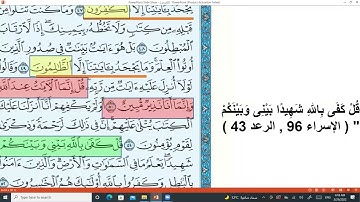 يَجْحَدُ بِـَٔايَٰتِنَآ إِلَّا ٱلْكَٰفِرُونَ ٤٧
قَبْلِهِۦ مِن كِتَٰبٍ وَلَا تَخُطُّهُۥ بِيَمِينِكَ ۖ إِذًا لَّٱرْتَابَ
ٱلْمُبْطِلُونَ ٤٨ بَلْ هُوَ ءَايَٰتٌۢ بَيِّنَٰتٌ فِى صُدُورِ ٱلَّذِينَ
أُوتُوا۟ ٱلْعِلْمَ ۚ وَمَا يَجْحَدُ بِـَٔايَٰتِنَآ إِلَّا ٱلظَّٰلِمُونَ ٤٩
قُلْ إِنَّمَا ٱلْـَٔايَٰتُ عِندَ ٱللَّهِ
وَإِنَّمَآ أَنَا۠ نَذِيرٌ مُّبِينٌ ٥٠ أَوَلَمْ يَكْفِهِمْ أَنَّآ أَنزَلْنَا عَلَيْكَ
ٱلْكِتَٰبَ يُتْلَىٰ عَلَيْهِمْ ۚ إِنَّ فِى ذَٰلِكَ
لِقَوْمٍ يُؤْمِنُونَ ٥١ قُلْ كَفَىٰ بِٱللَّهِ بَيْنِى وَبَيْنَكُمْ
شَهِيدًا ۖ يَعْلَمُ مَا فِى ٱلسَّمَٰوَٰتِ وَٱلْأَرْضِ ۗ وَٱلَّذِينَ ءَامَنُوا۟
بِٱلْبَٰطِلِ وَكَفَرُوا۟ بِٱللَّهِ أُو۟لَٰٓئِكَ هُمُ ٱلْخَٰسِرُونَ
قُلْ كَفَى بِاللَّهِ شَهِيدًا بَيْنِى وَبَيْنَكُمْ
" ( الإسراء 96 , الرعد 43 )